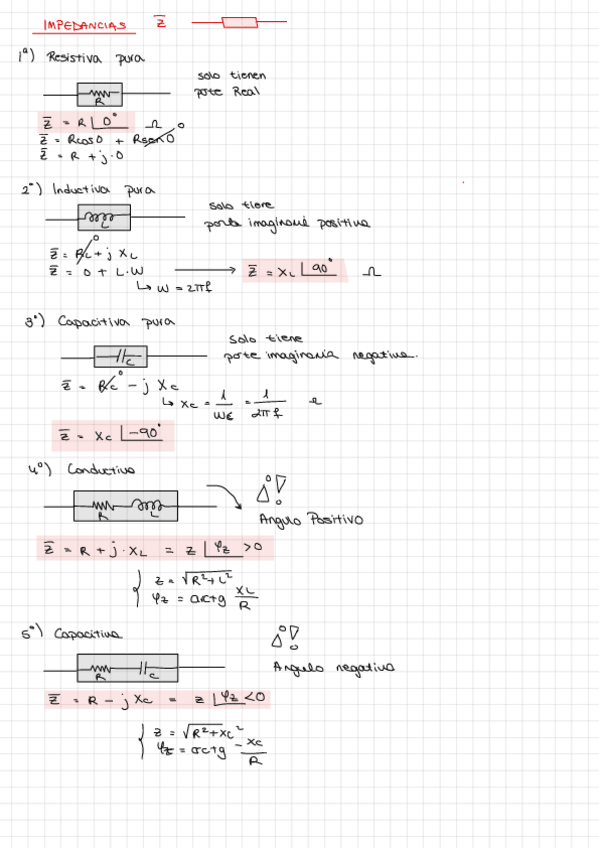 IMPEDANCIAS Z̅
1º) Resistiva pura
solo tienen
parte Real
R
Z̅ = R ∠0° Ω
Z̅ = Rcos0 + Rsen0 0
Z̅ = R + j·0
2º) Inductiva pura
solo tiene
parte imaginaria positiva
L
0
Z̅ = RL + j XL
Z̅ = 0 + L·W → Z̅ = XL ∠90° Ω
↳ W = 2πf
3º) Capacitiva pura
solo tiene
parte imaginaria negativa.
C
Z̅ = Rc 0 - j Xc
↳ Xc = 1/WC = 1/2πf
Z̅ = Xc ∠-90°
4º) Conductiva
R L
Angulo Positivo
Z̅ = R + j·XL = Z ∠φz > 0
Z = √R²+L²
φz = arctg XL/R
5º) Capacitiva
R C
Angulo negativo
Z̅ = R - j Xc = Z ∠φz < 0
Z = √R²+Xc²
φz = arctg -Xc/R